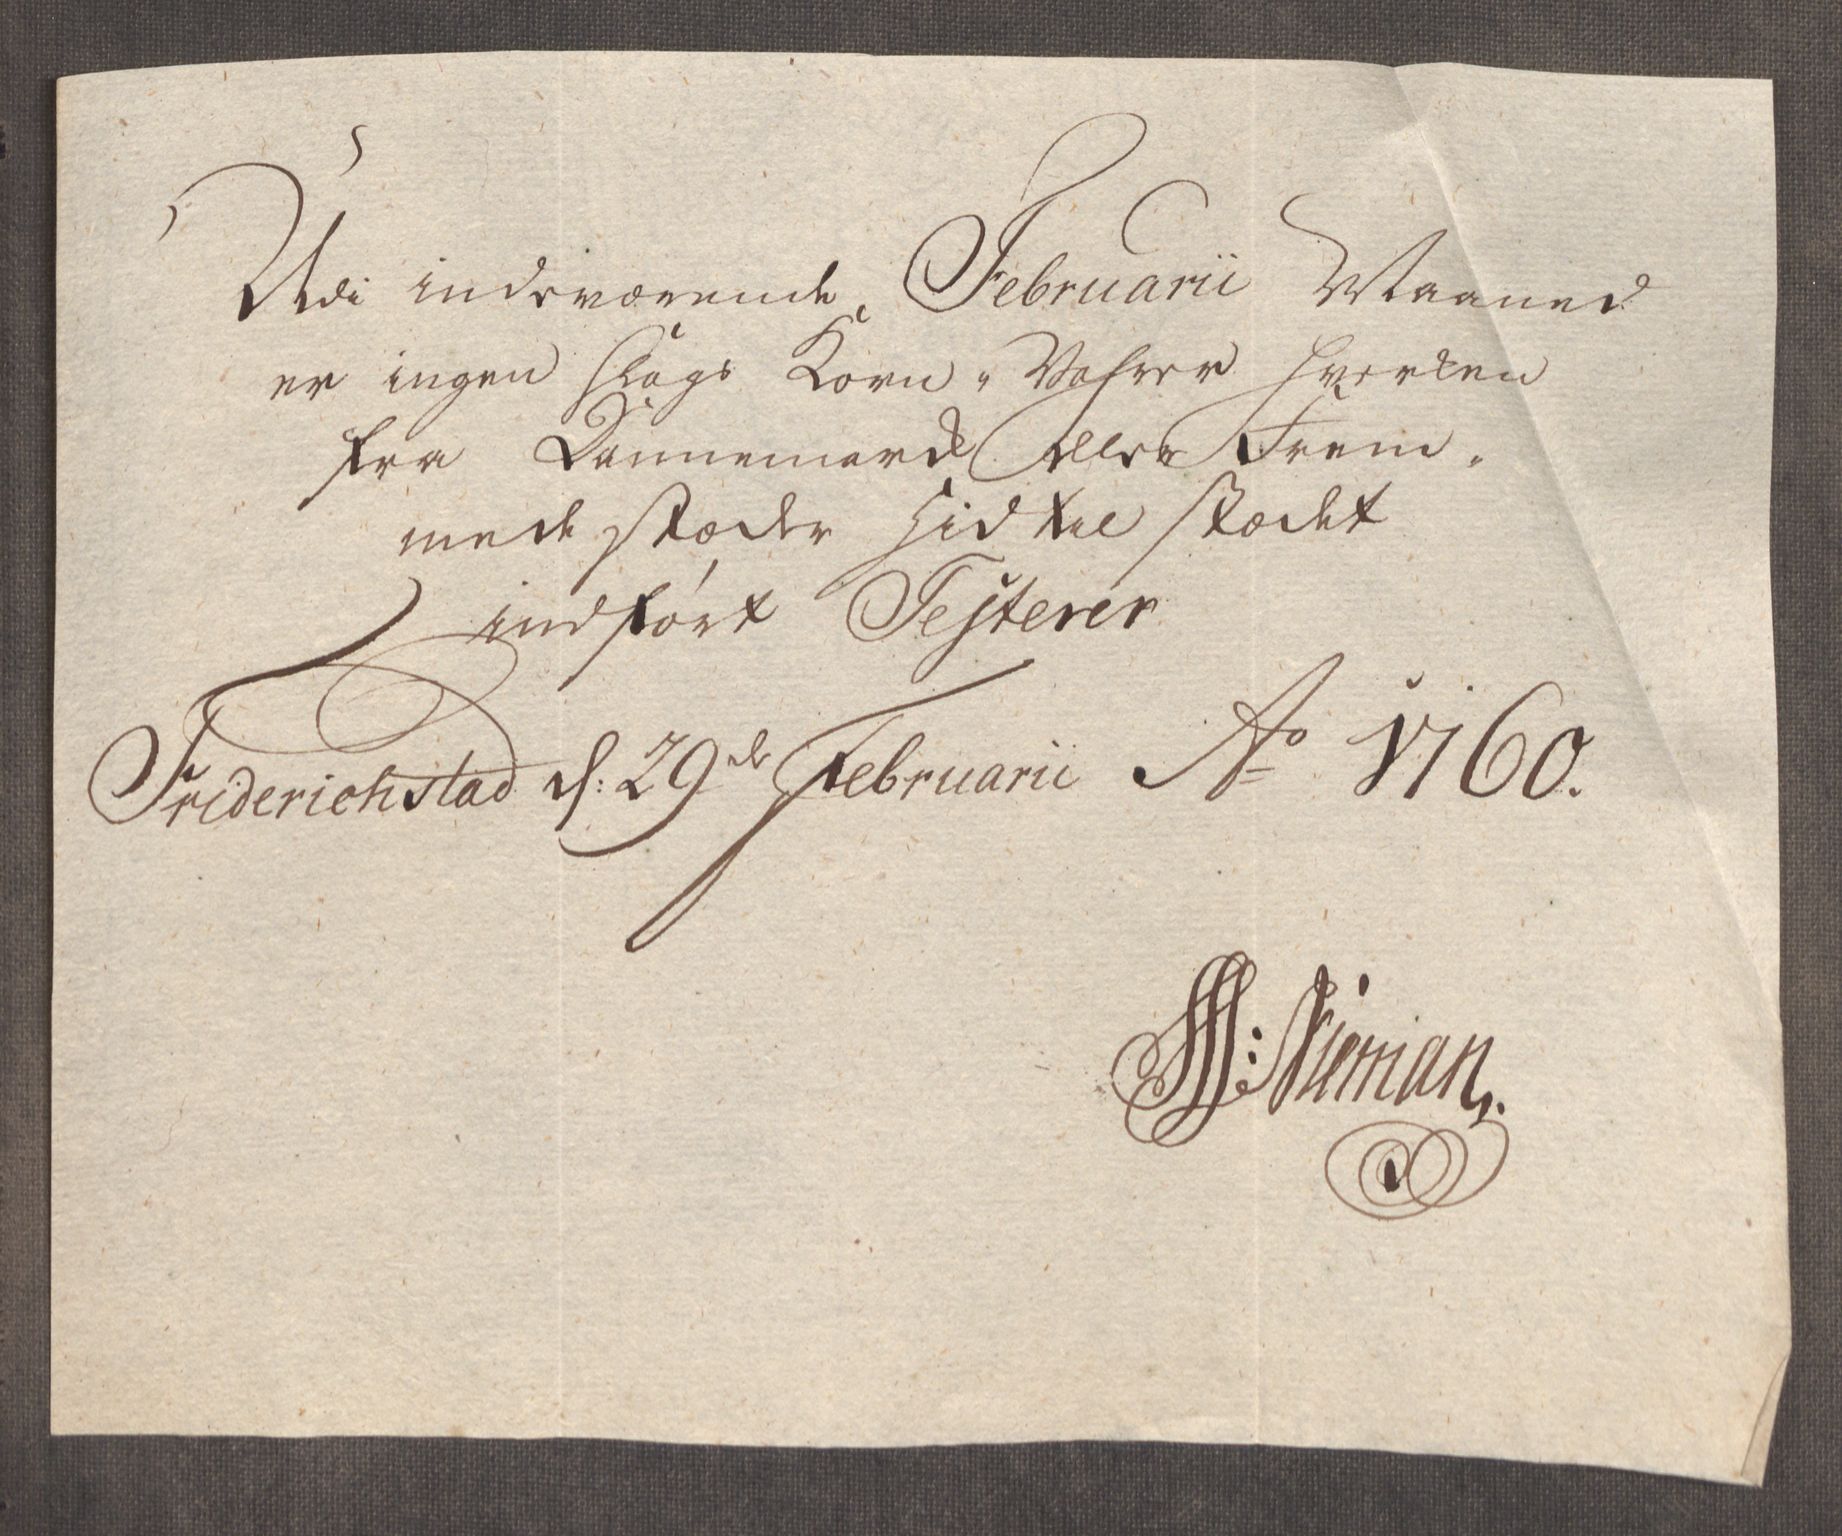 Udi indeværende Februarii Maaned
er ingen slags Korn-Vahrer hverken
fra Dannemark eller Frem-
mede stæder hid til stædet
indført Testerer
Friderichstad d: 29de Februarii Ao 1760.
Nieman.